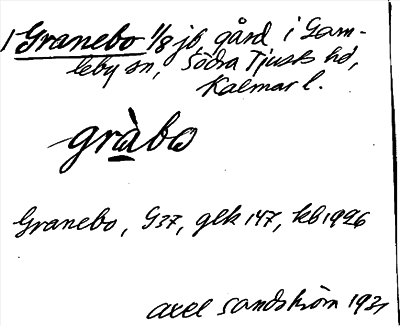 1 Granebo 1/8 jb, gård i Gam-
leby sn, Södra Tjusts hd,
Kalmar l.
gràbo
Granebo, G37, gek 147, kb 1926
Axel Sandström 1931